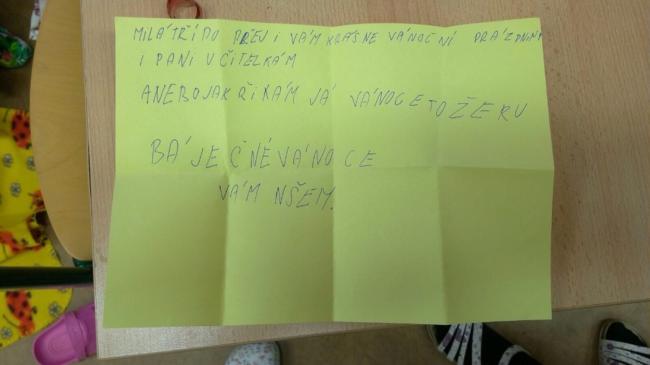 MILÁ TŘÍDO PŘEJI VÁM KRÁSNE VÁNOČNÍ PRÁZDNINY
I PANÍ UČITELKÁM
ANEBO JAK ŘIKÁM JÁ VÁNOCE TO ŽERU
BÁJEČNÉ VÁNOCE
VÁM NŠEM.